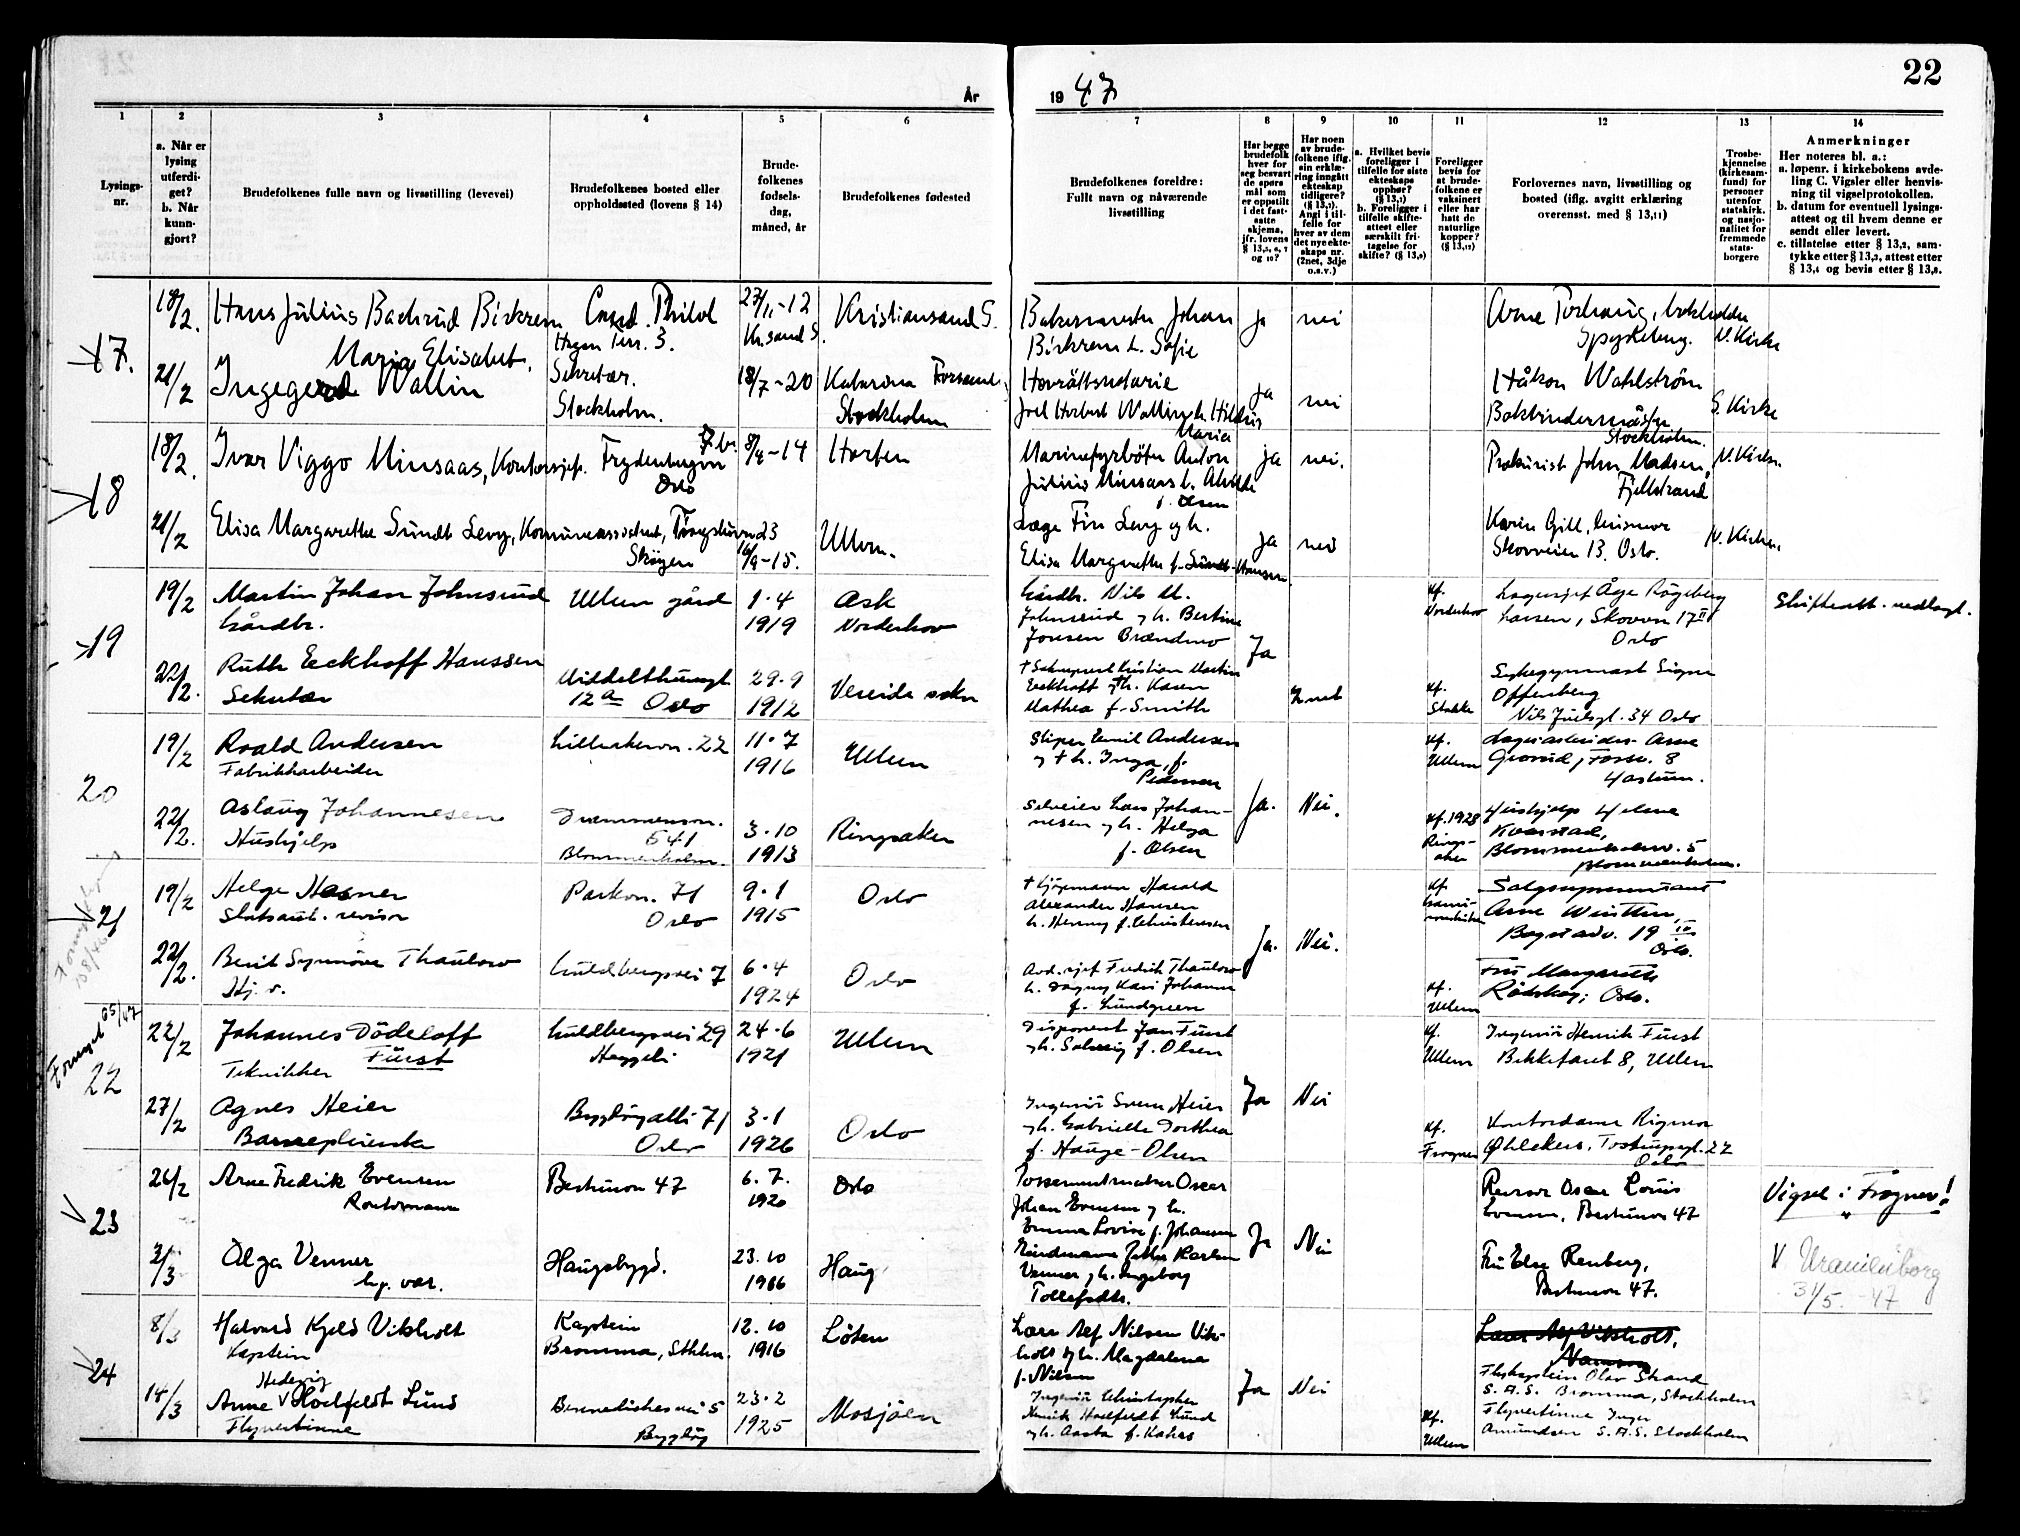 År
19 47
22
1
2
3
4
5
6
7
8
9
10
11
12
13
14
Lysings-
nr.
a. Når er
lysing
utferdi-
get?
b. Når
kunn-
gjort?
Brudefolkenes fulle navn og livsstilling (levevei)
Brudefolkenes bosted eller
oppholdssted (lovens § 14)
Brude-
folkenes
fødsels-
dag,
måned, år
Brudefolkenes fødested
Brudefolkenes foreldre:
Fullt navn og nåværende
livsstilling
Har begge
brudefolk
hver for
seg besvart
de spørs
mål som
er oppstilt
i det fast-
satte
skjema,
jfr. lovens
Har noen
av brude-
folkene iflg.
sin erklæ-
ring inngått
ekteskap
tidligere?
Angi i til-
felle for
hver av dem
det nye ekte-
skaps nr.
(2net, 3dje
o.s.v.)
a. Hvilket bevis
foreligger i
tilfelle for siste
ekteskaps
opphør?
b. Foreligger i
tilfelle skifte-
attest eller
særskilt fri-
tagelse for
skifte?
Foreligger
bevis for
at brude-
folkene er
vaksinert
eller har
hatt de
naturlige
kopper?
Forlovernes navn, livsstilling og
bosted (iflg. avgitt erklæring
overensst. med § 13,11)
Trosbe-
kjennelse
(kirkesam-
fund) for
personer
utenfor
statskirk.
og nasjo-
nalitet for
fremmede
stats-
borgere
Anmerkninger
Her noteres bl. a.:
a. løpenr. i kirkebokens avde-
ling C. Vigsler eller henvis-
ning til vigselprotokollen.
b. datum for eventuell lysings-
attest og til hvem denne er
sendt eller levert.
c. tillatelse etter § 13,2, sam-
tykke etter § 13,3, attest etter
§ 13,4 og bevis etter § 13,8.
17.
18/2.
Hans Julius Bachrud Birkrem
Cand. Philol
Hagen Terr. 3.
27/11-12
Kr.sand S.
Kristiansand S.
Bakermester Johan
Birkrem h. Sofie
ja
nei
Arne Torhaug, bokholder
Spydeberg.
N. Kirke
21/2
Maria Elisabet.
Ingegerd Wallin
Sekretær.
Stockholm.
18/7-20
Katarina
Stockholm
Hovrättsnotarie
Joel Herbert Wallin h.
Maria
ja
nei
Håkon Wahlström
Bokbindermäster
Stockholm.
S. Kirke
18
18/2.
Ivar Viggo Minsaas, Kontorsjef.
Frydenbergvn
7 b.
Oslo
14
Horten
Marinefyrbøter Anton
Julius Minsaas h.
f. Olsen
ja
nei.
Prokurist John Madsen
Fjellstrand
N. Kirke.
21/2
Elisa Margarethe Sundt Levy, Kommuneassistent,
23
Skøyen
-15.
Ullern.
Læge Fin Levy og h.
Elisa Margrethe f. Sundt-Hansen
ja
nei
Karin Gill, husmor
Skovveien 13. Oslo.
N. Kirke.
19
19/2
Martin Johan Johnsrud
Gårdbr.
Ullern gård
1.4
1919
Ask
Norderhov
Gårdbr. Nils M.
Johnsrud og h. Bertine
Jonsen Brændmo
Ja
kf.
Norderhov
Lagersjef Åge Rögeberg
Larsen, Skovvn 17 II
Oslo
Skifteatt. nedlagt.
22/2.
Ruth Eeckhoff Hanssen
Sekretær
Middelthunsgt
12a Oslo
29.9
1912
Eeckhoff og h. Karen
Mathea f. Smith
2net
kf.
Sykegymnast Signe
Offenberg
Nils Juelsgt. 34 Oslo
20
19/2
Roald Andersen
Fabrikkarbeider
Lilleakervn. 22
11.7
1916
Ullern
Sliper Emil Andersen
og † h. Inga, f.
kf.
Ullern
Lagerarbeider Arne
Haslum.
22/2.
Aslaug Johannesen
Hushjelp
Drammensvn.
541
Blommenholm.
3.10
1913
Ringsaker
Lars Johan-
nesen og h. Helga
f. Olsen
Ja.
Nei.
kf. 1928
Rings-
aker
Hushjelp Helene
Kvarstad,
Blommenholmv. 5
Blommenholm.
21
19/2
Helge Hasner
Statsaut. revisor
Parkvn. 71
Oslo
9.1
1915
Oslo
† Kjøpmann Harald
Alexander Hansen
h. Henny f. Christensen
Ja.
Nei.
kf.
Salgsrepresentant
Arne
Bogstadv. 19
Oslo.
22/2.
Berit Synnöve Thaulow
Hj. v.
Huldbergsvei 7
6.4
1924
Oslo
Avd. sjef Fredrik Thaulow
h. Dagny Kari Johanne
f. Lundgreen
kf.
Ullern
Fru Margarethe
Oslo.
Forrettet 65/47
22
22/2
Johannes Dödeloff
Fürst
Tekniker
Huldbergsvei 29
Heggeli
24.6
1921
Ullern
Disponent Jan Fürst
og h. Solveig f. Olsen
kf.
Ullern
Ingeniör Henrik Fürst
Bekkefaret 8, Ullern
27/2
Agnes Heier
Barnepleierske
Bygdøyallé 71
Oslo
3.1
1926
Oslo
Ingeniör Svein Heier
og h. Gabrielle Dorthea
f. Hauge-Olsen
Ja
Nei
kf.
Frogner
Kontordame Rigmor
Øhlckers, Tostrupsgt. 22
Oslo
23
26/2
Arne Fredrik Evensen
Kontormann
Bestumvn 47
6.7.
1920
Oslo
Possementmaker Oscar
Johan Evensen og h.
Emma Lovise f. Johansen
Ja
Nei
Revisor Oscar Louis
Evensen, Bestumvn 47
Vigsel i Frogner!
3/3
Olga Venner
hj. vær.
Haugsbygd.
23.10
1916
Haug
Venner og h. Ingeborg
Tollefsdtr.
Fru Else Renberg,
Bestumvn 47.
V. Uranienborg
31/5.-47
24
8/3
Halvard Kjeld Viksholt
Kaptein
Kaptein
Bromma, Sthlm.
12.10
1916
Löten
Lærer Alf Nilsen Viks-
holt og h. Magdalena
f. Nilsen
Lærer Alf Viksholt,
Flykaptein Olav Strand
S.A.S. Bromma, Stockholm
14/3
Hedevig
Anne V Hoelfeldt Lund
Flyvertinne
Benedichesvei 5
Bygdøy
23.2
1925
Mosjöen
Ingeniör Christopher
Henrik Hoelfeldt Lund
og h. Aasta f. Kahrs
Ja
Nei
kf.
Ullern
Flyvertinne Inger
Amundsen S.A.S. Stockholm